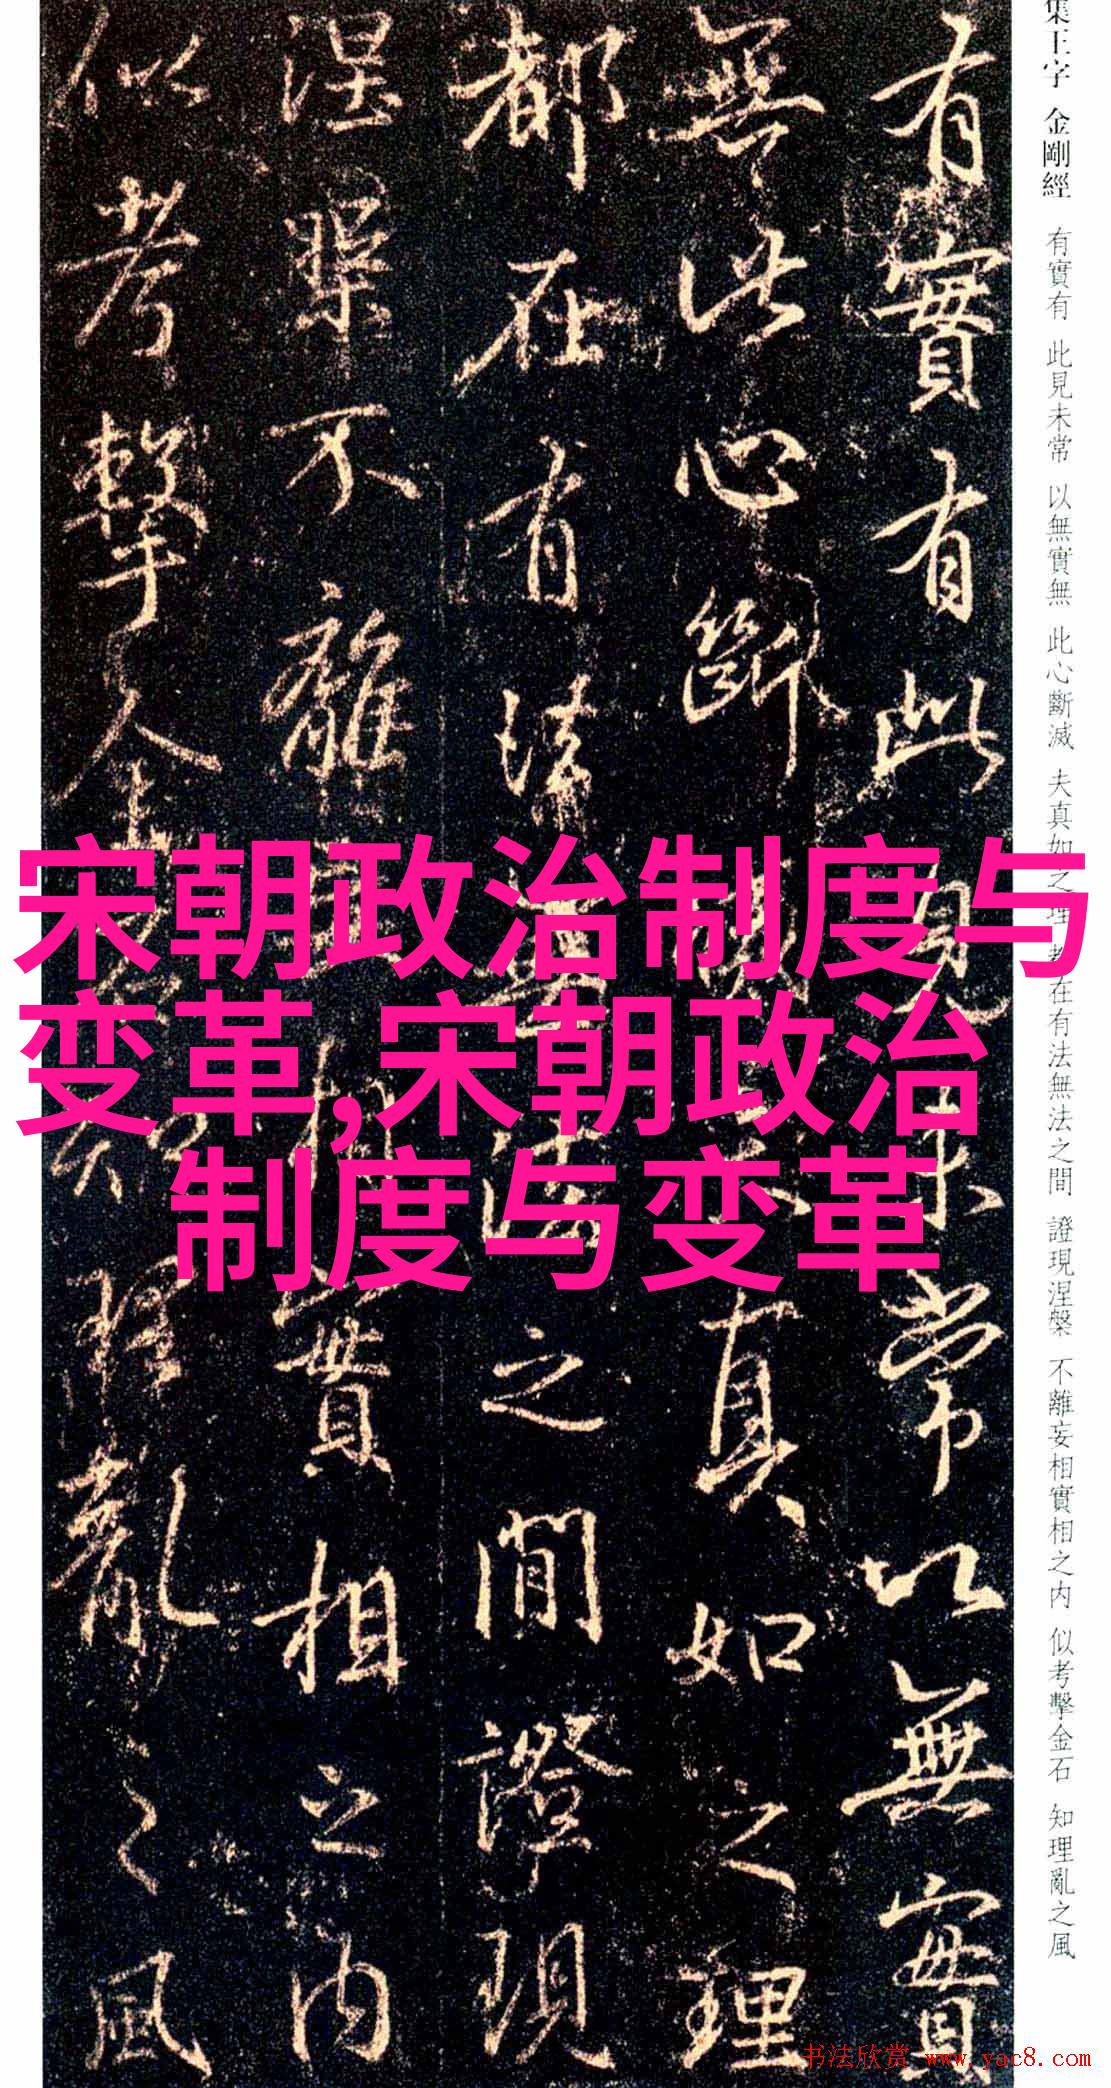 集王字 金剛經 有實有 此見未常 以無實無 此心斷滅 夫真如之理 都在有法無法之間 證現涅槃 不離妄相實相之内 似考擊金石 知理亂之風
有實有此見未常以無實
無此心斷 真如之理
都在有法無法之間證現
涅槃不離 相實相之内
似考擊金 知理亂之風
宋朝政治制度与
变革,宋朝政治
制度与变革
书法欣赏 www.yac8.com